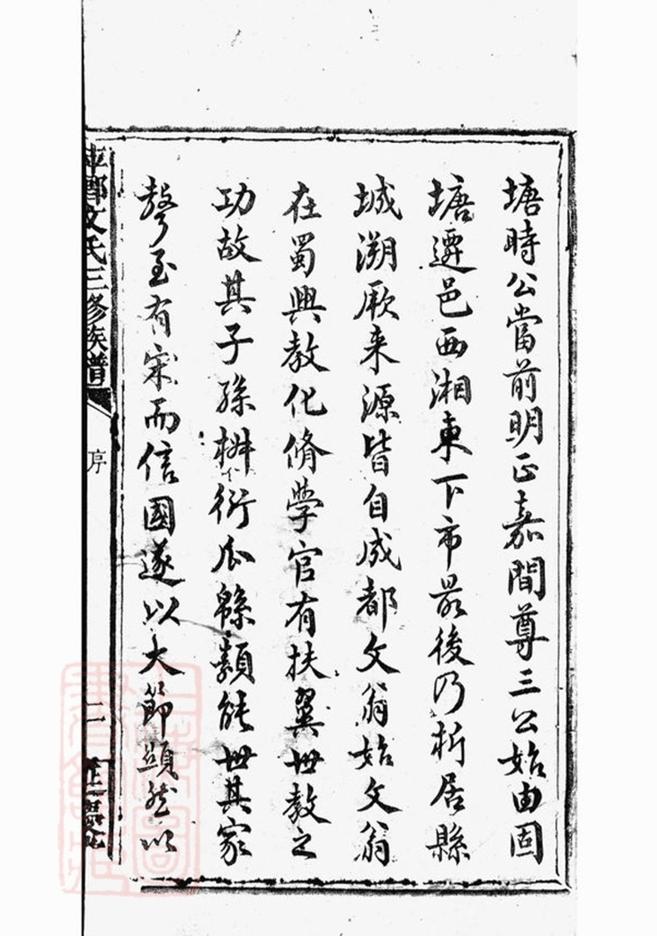 塘時公當前明正嘉間尊三公始由固
塘遷邑西湘東下市最後乃析居縣
城溯厥来源皆自成都文翁始文翁
在蜀興教化脩学官有扶翼世教之
功故其子孫椒衍瓜緜類能世其家
聲至有宋而信國遂以大節顯然以
萍鄉文氏三修族譜
序
二